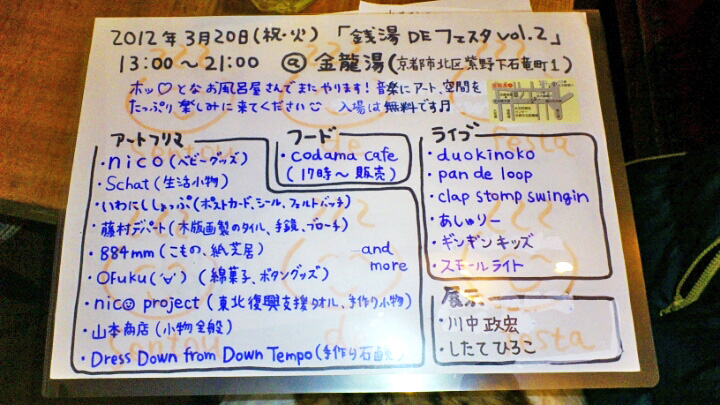 2012年3月20日(祝・火)「銭湯DEフェスタ vol.2」
13:00〜21:00 @金龍湯(京都市北区紫野下石龍町1)
ホッ♡となお風呂屋さんでまたやります!音楽にアート、空間を
たっぷり楽しみに来てください 入場は無料です月
アートフリマ
・nico(ベビーグッズ)
・Schat(生活小物)
・いわにししょっぷ(ポストカード、シール、フェルトバッチ)
・藤村デパート(木版画製のタイル、手鏡、ブローチ)
・884mm(こもの、紙芝居)
・OFuku('ᴗ')(綿菓子、ボタングッズ)
・nico project(東北復興支援タオル、手作り小物)
・山本商店(小物全般)
・Dress Down from Down Tempo(手作り石鹸)
and
more
フード
・codama cafe
(17時〜販売)
ライブ
・duokinoko
・pan de loop
・clap stomp swingin
・あしゅりー
・ギンギンキッズ
・スモールライト
展示
・川中政宏
・したてひろこ
sentou
de
festa
sentou
de
festa